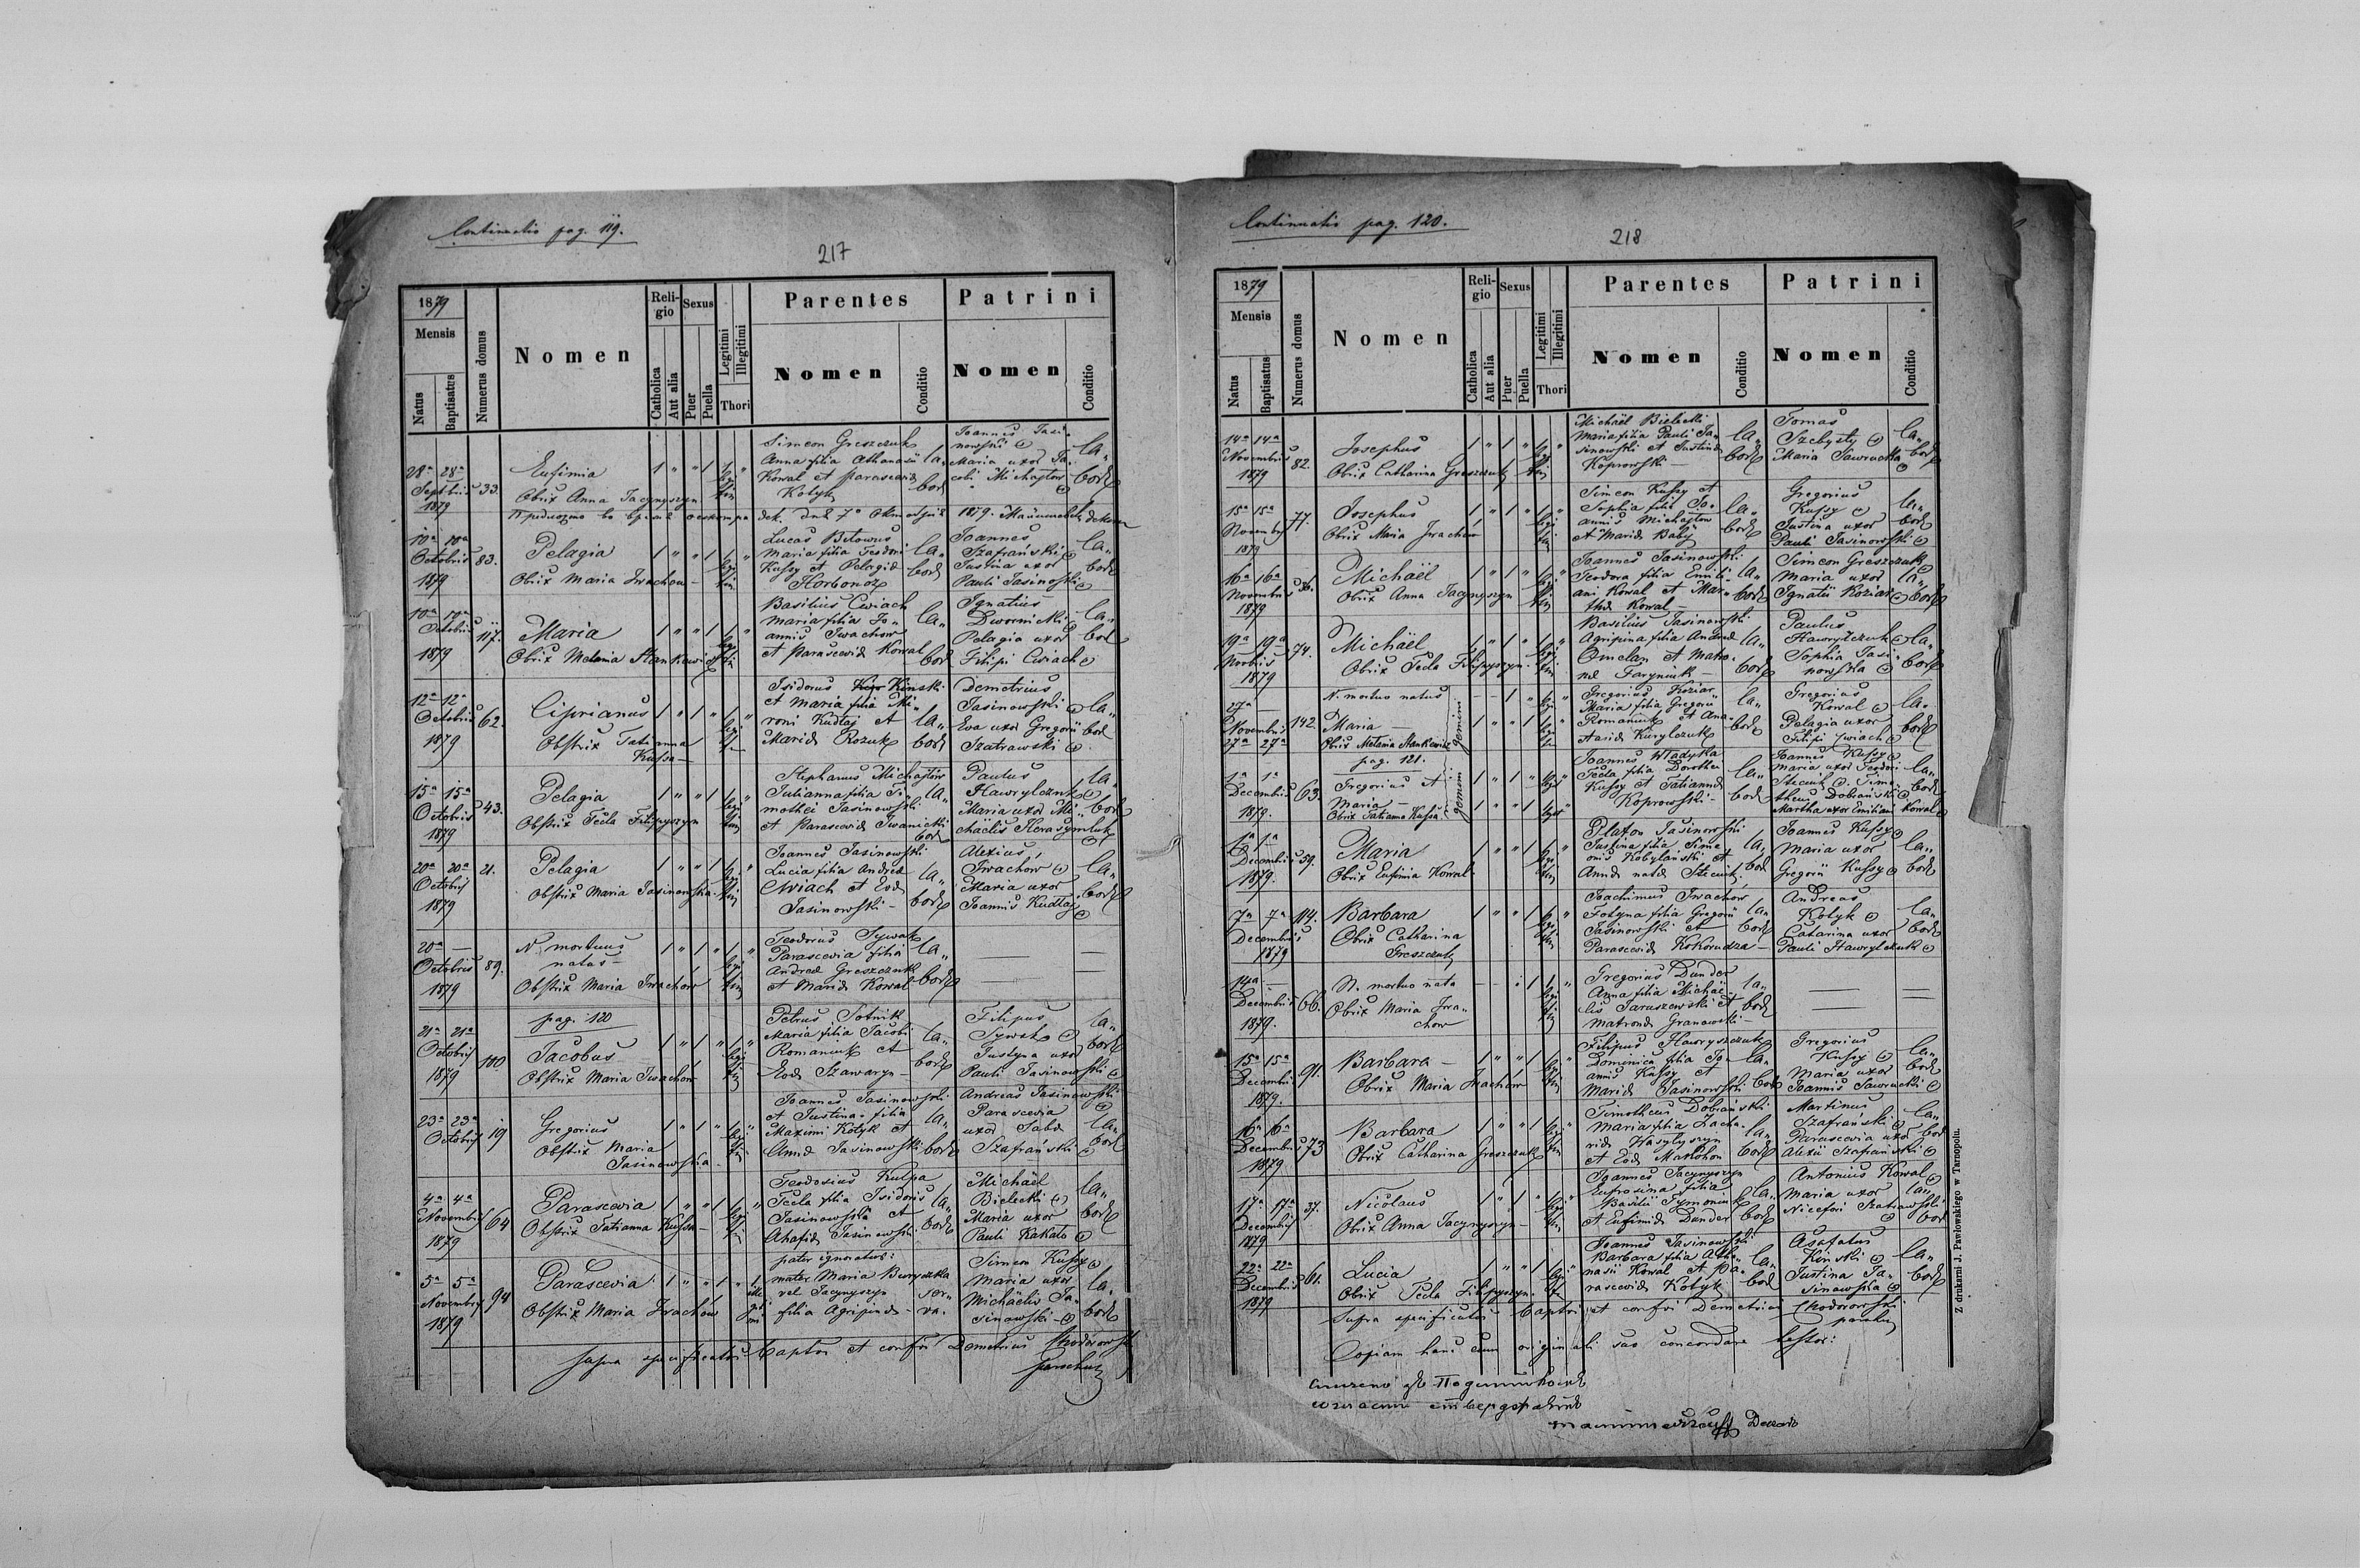 Continuatio pag. 119.
217
1879
Mensis
Natus
Baptisatus
Numerus domus
Nomen
Religio
Catholica
Aut alia
Sexus
Puer
Puella
Legitimi
Illegitimi
Thori
Parentes
Nomen
Conditio
Patrini
Nomen
Conditio
28a 28a
Septbris 33.
1879
Eufimia
Obrix Anna Jacynyszyn
Simeon Greszczuk
Anna filia Athanasii
Kowal et Parascevia
Kotyk
Joannes Jasi-
nowski
Maria uxor Ja-
cobi Michajlow
10a 10a
Octobris 83.
1879
Pelagia
Obrix Maria Iwachow
Lucas Bitowus
Maria filia Teodori
Kufsy et Pelagia
Horbonoz
Joannes
Szafrański
Justina uxor
Pauli Jasinoski
10a 10a
Octobris 117.
1879
Maria
Obrix Melania Stankowicz
Basilius Cwiach
Maria filia Jo-
annis Iwachow
et Parascevia Kowal
Ignatius
Dwornicki
Pelagia uxor
Filipi Cwiach
12a 12a
Octobris 62.
1879
Ciprianus
Obstrix Tatianna
Kufsa
Isidorus Kinski
et Maria filia Mi-
roni Kudlaj et
Maria Rozuk
Demetrius
Jasinowski
Eva uxor Gregorii
Szatrawski
15a 15a
Octobris 43.
1879
Pelagia
Obstrix Tecla Filipyszyn
Stephanus Michajlow
Julianna filia Ti-
mothei Jasinowski
et Parascevia Iwanicki
Paulus
Hawrylczuk
Maria uxor Mi-
chaelis Kerasymluk
20a 20a
21.
Octobris
1879
Pelagia
Obstrix Maria Jasinowska
Joannes Jasinowski
Lucia filia Andrea
Cwiach et Eva
Jasinowski
Alexius
Iwachow
Maria uxor
Joannis Kudlaj
20a —
Octobris 89.
1879
N. mortuus
natus
Obstrix Maria Iwachow
Teodorus Sywak
Parascevia filia
Andrea Greszczuk
et Maria Kowal
pag. 120
21a 21a
Octobris 100
1879
Jacobus
Obstrix Maria Iwachow
Petrus Sotnik
Maria filia Jacobi
Romaniuk et
Eva Szawaryn
Filipus
Sywak
Justyna uxor
Pauli Jasinowski
23a 23a
Octobris 19
Gregorius
Obstrix Maria
Jasinowska
Joannes Jasinowski
et Justina filia
Maximi Kotyk et
Anna Jasinowski
Andreas Jasinowski
Parascevia
uxor Sabae
Szafrański
4a 4a
Novembris 64
1879
Parascevia
Obstrix Tatianna Kufsa
Teodosius Kulpa
Tecla filia Isidoris
Jasinowski et
Ahafia Jasinowski
Michael
Bielecki
Maria uxor
Pauli Kakato
5a 5a
Novembris 94
1879
Parascevia
Obstrix Maria Iwachow
pater ignoratus:
mater Maria Buryczka
vel Jacynyszyn
filia Agripina
Simeon Kufsy
Maria uxor
Michaelis Ja-
sinowski
Supra specificatos baptisi et confri Demetrius Chodorowski
parochus
Continuatio pag. 120.
218
1879
Mensis
Natus
Baptisatus
Numerus domus
Nomen
Religio
Catholica
Aut alia
Sexus
Puer
Puella
Legitimi
Illegitimi
Thori
Parentes
Nomen
Conditio
Patrini
Nomen
Conditio
14a 14a
Novembris 82.
1879
Josephus
Obrix Catharina Greszczuk
Michaël Bielecki
Maria filia Pauli Ja-
sinowski et Justina
Koprowski
Tomas
Szchysty
Maria Sawrucka
15a 15a
Novembris 77.
1879
Josephus
Obrix Maria Iwachow
Simeon Kufsy et
Sophia filia Jo-
annis Michajlow
et Maria Baby
Gregorius
Kufsy
Justina uxor
Pauli Jasinowski
16a 16a
Novembris 36.
1879
Michaël
Obrix Anna Jacynyszyn
Joannes Jasinowski
Teodora filia Emili-
ani Kowal et Mar-
tha Kowal
Simeon Greszczuk
Maria uxor
Ignatii Koziar
19a 19a
Novbris 74.
1879
Michaël
Obrix Tecla Filipyszyn
Basilius Jasinowski
Agripina filia Andrea
Omelan et Matro-
na Faryniuk
Paulus
Hawrylczuk
Sophia Jasi-
nowska
27a —
Novembris 142.
27a 27a
N. mortuo natus
Maria
Obrix Melania Stankowicz
gemini
Gregorius Koziar
Maria filia Gregorii
Romaniuk et Ana-
stasia Kurylczuk
Gregorius
Kowal
Pelagia uxor
Filipi Cwiach
pag. 121.
1a 1a
Decembris 63.
1879.
Gregorius et
Maria
Obrix Tatianna Kufsa
gemini
Joannes Wladyka
Tecla filia Dorothei
Kufsy et Tatianna
Koprowski
Joannes Kufsy
Maria uxor Teodori
Steciuk. Timo-
theus Dobiański
Martha uxor Emiliani Kowal
1a 1a
Decembris 59.
1879.
Maria
Obrix Eufimia Kowal
Platon Jasinowski
Justina filia Sime-
onis Kobylański et
Anna nata Steciuk
Joannes Kufsy
Maria uxor
Gregorii Kufsy
7a 7a 114.
Decembris
1879
Barbara
Obrix Catharina
Greszczuk
Joachimus Iwachow
Fotyna filia Gregorii
Jasinowski et
Parascevia Kokorudza
Andreas
Kotyk
Catarina uxor
Pauli Hawrylczuk
14a —
Decembris 66.
1879.
N. mortuo nata
Obrix Maria Iwa-
chow
Gregorius Dunder
Anna filia Michaë-
lis Jaruszewski et
Matrona Granowski
15a 15a
Decembris 91.
1879.
Barbara
Obrix Maria Iwachow
Filipus Hawryszczuk
Dominica filia Jo-
annis Kufsy et
Maria Jasinowski
Gregorius
Kufsy
Maria uxor
Joannis Sawrucki
16a 16a
Decembris 73
1879
Barbara
Obrix Catharina Greszczuk
Timotheus Dobiański
Maria filia Zacha-
ria Wasylyszyn
et Eva Matkohon
Martinus
Szafrański
Parascevia uxor
Alexii Szafrański
17a 17a 37.
Decembris
1879
Nicolaus
Obrix Anna Jacynyszyn
Joannes Jacynyszyn
Eufrosina filia
Basilii Tymoniuk
et Eufimia Dunder
Antonius Kowal
Maria uxor
Nicefori Szatrawski
22a 22a
Decembris 61.
1879
Lucia
Obrix Tecla Filipyszyn
Joannes Jasinowski
Barbara filia Atha-
nasii Kowal et Pa-
rascevia Kotyk
Asafatus
Kinski
Justina Ja-
sinowska
Supra specificatos baptisi et confri Demetrius Chodorowski
parochus
Copiam hanc cum originali suo concordare testor:
Z drukarni J. Pawłowskiego w Tarnopolu.